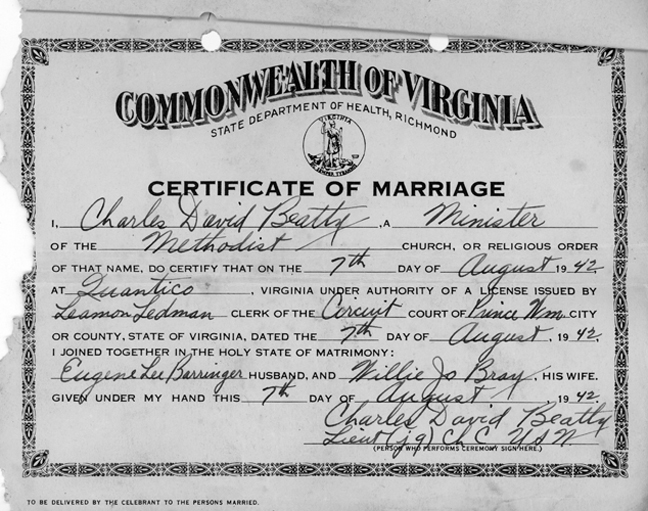 COMMONWEALTH OF VIRGINIA
STATE DEPARTMENT OF HEALTH, RICHMOND
VIRGINIA
SIC SEMPER TYRANNIS
CERTIFICATE OF MARRIAGE
I, Charles David Beatty, A Minister
OF THE Methodist CHURCH, OR RELIGIOUS ORDER
OF THAT NAME, DO CERTIFY THAT ON THE 7th DAY OF August 1942
AT Quantico, VIRGINIA UNDER AUTHORITY OF A LICENSE ISSUED BY
Leamon Ledman CLERK OF THE Circuit COURT OF Prince Wm. CITY
OR COUNTY, STATE OF VIRGINIA, DATED THE 7th DAY OF August, 1942.
I JOINED TOGETHER IN THE HOLY STATE OF MATRIMONY:
Eugene Lee Barringer HUSBAND, AND Willie Jo Bray, HIS WIFE.
GIVEN UNDER MY HAND THIS 7th DAY OF August, 1942.
Charles David Beatty
Lieut (jg) ChC USN
(PERSON WHO PERFORMS CEREMONY SIGN HERE.)
TO BE DELIVERED BY THE CELEBRANT TO THE PERSONS MARRIED.